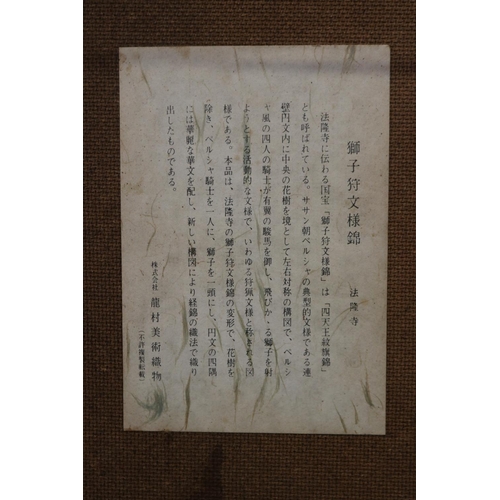 獅子狩文様錦
法隆寺
法隆寺に伝わる国宝「獅子狩文様錦」は「四天王紋旗錦」
とも呼ばれている。ササン朝ペルシャの典型的文様である連
璧円文内に中央の花樹を境として左右対称の構図で、ペルシ
ャ風の四人の騎士が有翼の駿馬を御し、飛びかゝる獅子を射
ようとする活動的な文様で、いわゆる狩猟文様と称される図
様である。本品は、法隆寺の獅子狩文様錦の変形で、花樹を
除き、ペルシャ騎士を一人に、獅子を一頭にし、円文の四隅
には華麗な華文を配し、新しい構図により経錦の織法で織り
出したものである。
株式会社 龍村美術織物
(不許複製転載)